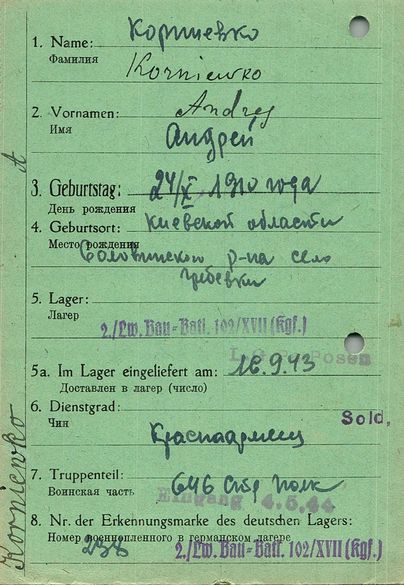 Корниевко
1. Name:
Фамилия
Korniewko
2. Vornamen: Andrej
Имя
Андрей
3. Geburtstag: 24/X 1910 года
День рождения
4. Geburtsort: Киевской области
Место рождения
р-на село
Гребенки
5. Lager:
Лагер
2./Lw. Bau-Batl. 102/XVII (Kgf.)
Posen
5a. Im Lager eingeliefert am: 16.9.43
Доставлен в лагер (число)
6. Dienstgrad:
Чин
Sold.
Красноармеец
7. Truppenteil: 646 стр полк
Воинская часть
Eingang 4.5.44
8. Nr. der Erkennungsmarke des deutschen Lagers:
Номер военнопленного в германском лагере
238
2./Lw. Bau-Batl. 102/XVII (Kgf.)
A
Korniewko